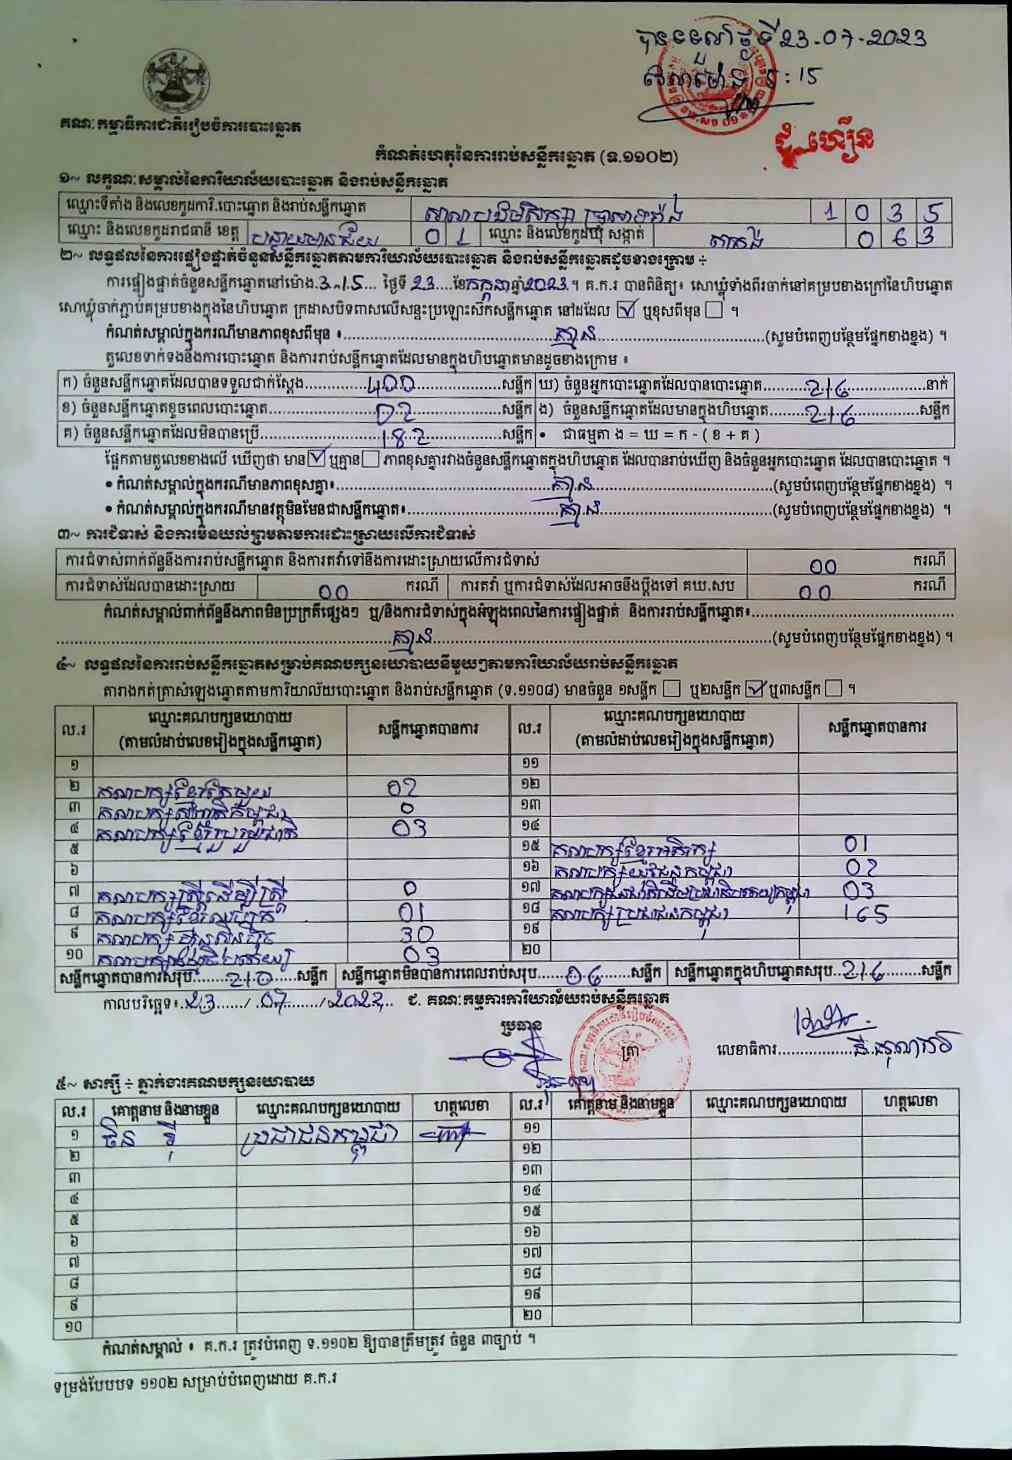 បានទទួលថ្ងៃទី 23-07-2023
ម៉ោង 3:15
ជុំ ហឿន
គណៈកម្មាធិការជាតិរៀបចំការបោះឆ្នោត
កំណត់ហេតុនៃការរាប់សន្លឹកឆ្នោត (ទ.១១០២)
១~ លក្ខណៈសម្គាល់នៃការិយាល័យបោះឆ្នោត និងរាប់សន្លឹកឆ្នោត
ឈ្មោះទីតាំង និងលេខកូដការិ.បោះឆ្នោត និងរាប់សន្លឹកឆ្នោត សាលាបឋមសិក្សា 1 0 3 5
ឈ្មោះ និងលេខកូដរាជធានី ខេត្ត បន្ទាយមានជ័យ 0 1 ឈ្មោះ និងលេខកូដឃុំ សង្កាត់ 0 6 3
២~ លទ្ធផលនៃការផ្ទៀងផ្ទាត់ចំនួនសន្លឹកឆ្នោតតាមការិយាល័យបោះឆ្នោត និងរាប់សន្លឹកឆ្នោតដូចខាងក្រោម ÷
ការផ្ទៀងផ្ទាត់ចំនួនសន្លឹកឆ្នោតនៅម៉ោង 3:15 ថ្ងៃទី 23 ខែ កក្កដា ឆ្នាំ 2023 ។ គ.ក.រ បានពិនិត្យ៖ សោឃ្លុំទាំងពីរចាក់នៅគម្របខាងក្រៅនៃហិបឆ្នោត
សោឃ្លុំចាក់ភ្ជាប់គម្របខាងក្នុងនៃហិបឆ្នោត ក្រដាសបិទពាសលើសន្ទះប្រឡោះសៀកសន្លឹកឆ្នោត នៅដដែល ☑ ឬខុសពីមុន ☐ ។
កំណត់សម្គាល់ក្នុងករណីមានភាពខុសពីមុន ៖ គ្មាន (សូមបំពេញបន្ថែមផ្នែកខាងខ្នង) ។
តួលេខទាក់ទងនឹងការបោះឆ្នោត និងការរាប់សន្លឹកឆ្នោតដែលមានក្នុងហិបឆ្នោតមានដូចខាងក្រោម ៖
ក) ចំនួនសន្លឹកឆ្នោតដែលបានទទួលជាក់ស្តែង 400 សន្លឹក ឃ) ចំនួនអ្នកបោះឆ្នោតដែលបានបោះឆ្នោត 216 នាក់
ខ) ចំនួនសន្លឹកឆ្នោតខូចពេលបោះឆ្នោត 02 សន្លឹក ង) ចំនួនសន្លឹកឆ្នោតដែលមានក្នុងហិបឆ្នោត 216 សន្លឹក
គ) ចំនួនសន្លឹកឆ្នោតដែលមិនបានប្រើ 182 សន្លឹក • ជាធម្មតា ង = ឃ = ក - ( ខ + គ )
ផ្អែកតាមតួលេខខាងលើ ឃើញថា មាន ☑ ឬគ្មាន ☐ ភាពខុសគ្នារវាងចំនួនសន្លឹកឆ្នោតក្នុងហិបឆ្នោត ដែលបានរាប់ឃើញ និងចំនួនអ្នកបោះឆ្នោត ដែលបានបោះឆ្នោត ។
• កំណត់សម្គាល់ក្នុងករណីមានភាពខុសគ្នា៖ គ្មាន (សូមបំពេញបន្ថែមផ្នែកខាងខ្នង) ។
• កំណត់សម្គាល់ក្នុងករណីមានវត្ថុមិនមែនជាសន្លឹកឆ្នោត៖ គ្មាន (សូមបំពេញបន្ថែមផ្នែកខាងខ្នង) ។
៣~ ការជំទាស់ និងការមិនយល់ព្រមតាមការដោះស្រាយលើការជំទាស់
ការជំទាស់ពាក់ព័ន្ធនឹងការរាប់សន្លឹកឆ្នោត និងការតវ៉ាទៅនឹងការដោះស្រាយលើការជំទាស់ 00 ករណី
ការជំទាស់ដែលបានដោះស្រាយ 00 ករណី ការតវ៉ា ឬការជំទាស់ដែលអាចនឹងប្តឹងទៅ គឃ.សប 00 ករណី
កំណត់សម្គាល់ពាក់ព័ន្ធនឹងភាពមិនប្រក្រតីផ្សេងៗ ឬ/និងការជំទាស់ក្នុងអំឡុងពេលនៃការផ្ទៀងផ្ទាត់ និងការរាប់សន្លឹកឆ្នោត៖
គ្មាន (សូមបំពេញបន្ថែមផ្នែកខាងខ្នង) ។
៤~ លទ្ធផលនៃការរាប់សន្លឹកឆ្នោតសម្រាប់គណបក្សនយោបាយនីមួយៗតាមការិយាល័យរាប់សន្លឹកឆ្នោត
តារាងកត់ត្រាសំឡេងឆ្នោតតាមការិយាល័យបោះឆ្នោត និងរាប់សន្លឹកឆ្នោត (ទ.១១០៨) មានចំនួន ១សន្លឹក ☐ ឬ២សន្លឹក ☑ ឬ៣សន្លឹក ☐ ។
ល.រ ឈ្មោះគណបក្សនយោបាយ (តាមលំដាប់លេខរៀងក្នុងសន្លឹកឆ្នោត) សន្លឹកឆ្នោតបានការ ល.រ ឈ្មោះគណបក្សនយោបាយ (តាមលំដាប់លេខរៀងក្នុងសន្លឹកឆ្នោត) សន្លឹកឆ្នោតបានការ
១ ១១
២ គណបក្សខ្មែរតែមួយ 02 ១២
៣ គណបក្សសញ្ជាតិកម្ពុជា 0 ១៣
៤ គណបក្សខ្មែររួបរួមជាតិ 03 ១៤
៥ ១៥ គណបក្សខ្មែរអភិរក្ស 01
៦ ១៦ គណបក្សយុវជនកម្ពុជា 02
៧ គណបក្សស្ត្រីដើម្បីស្ត្រី 0 ១៧ 03
៨ 01 ១៨ គណបក្សប្រជាជនកម្ពុជា 165
៩ គណបក្សហ្វ៊ុនស៊ិនប៉ិច 30 ១៩
១០ 03 ២០
សន្លឹកឆ្នោតបានការសរុប 210 សន្លឹក សន្លឹកឆ្នោតមិនបានការពេលរាប់សរុប 06 សន្លឹក សន្លឹកឆ្នោតក្នុងហិបឆ្នោតសរុប 216 សន្លឹក
កាលបរិច្ឆេទ៖ 23 / 07 / 2023 ជ. គណៈកម្មការការិយាល័យរាប់សន្លឹកឆ្នោត
ប្រធាន ត្រា លេខាធិការ
៥~ សាក្សី ÷ ភ្នាក់ងារគណបក្សនយោបាយ
ល.រ គោត្តនាម និងនាមខ្លួន ឈ្មោះគណបក្សនយោបាយ ហត្ថលេខា ល.រ គោត្តនាម និងនាមខ្លួន ឈ្មោះគណបក្សនយោបាយ ហត្ថលេខា
១ ចិន ទ្រី ប្រជាជនកម្ពុជា ១១
២ ១២
៣ ១៣
៤ ១៤
៥ ១៥
៦ ១៦
៧ ១៧
៨ ១៨
៩ ១៩
១០ ២០
កំណត់សម្គាល់ ៖ គ.ក.រ ត្រូវបំពេញ ទ.១១០២ ឱ្យបានត្រឹមត្រូវ ចំនួន ៣ច្បាប់ ។
ទម្រង់បែបបទ ១១០២ សម្រាប់បំពេញដោយ គ.ក.រ